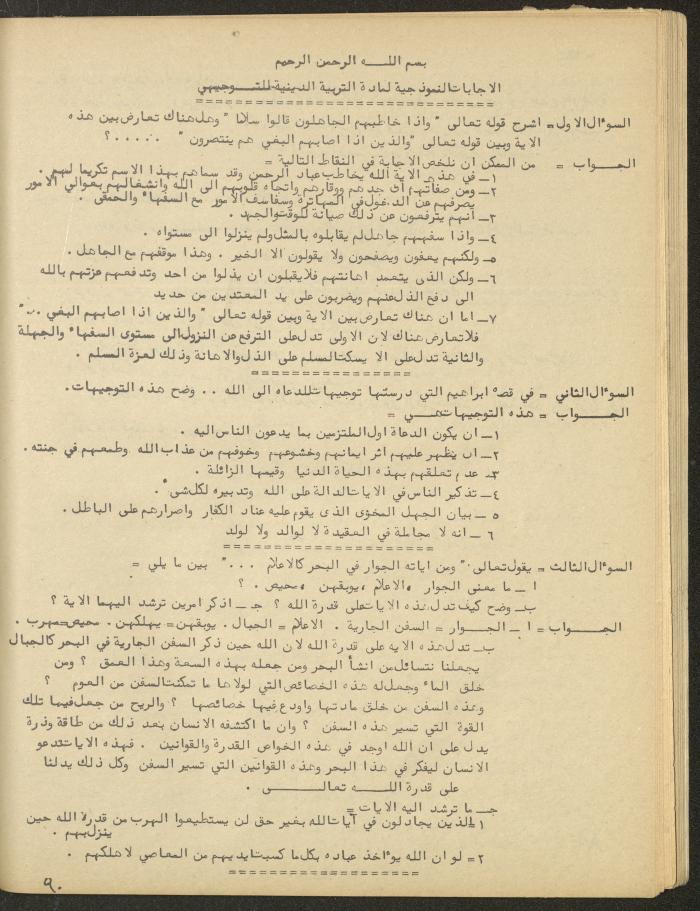 بسم اللـــه الرحمن الرحيم
الاجابات النموذجية لمادة التربية الدينية للتـــوجيهي
السوءال الاول = اشرح قوله تعالى " واذا خاطبهم الجاهلون قالوا سلاما " وهل هناك تعارض بين هذه
الاية وبين قوله تعالى " والذين اذا اصابهم البغي هم ينتصرون " ..... ؟
الجـــواب = من الممكن ان نلخص الاجابة في النقاط التالية =
١ــ في هذه الاية الله يخاطب عباد الرحمن وقد سماهم بهذا الاسم تكريما لهم .
٢ــ ومن صفاتهم ان جدهم ووقارهم واتجاه قلوبهم الى الله وانشغالهم بعوالي الامور
يصرفهم عن الدخول في المهاترة وسفاسف الامور مع السفهاء والحمقى .
٣ــ انهم يترفعون عن ذلك صيانة للوقت والجهد .
٤ــ واذا سفههم جاهل لم يقابلوه بالمثل ولم ينزلوا الى مستواه .
٥ــ ولكنهم يعفون ويصفحون ولا يقولون الا الخير . وهذا موقفهم مع الجاهل .
٦ــ ولكن الذى يتعمد اهانتهم فلا يقبلون ان يذلوا من احد وتدفعهم عزتهم بالله
الى دفع الذل عنهم ويضربون على يد المعتدين من حديد
٧ــ اما ان هناك تعارض بين الاية وبين قوله تعالى " والذين اذا اصابهم البغي .. "
فلا تعارض هناك لان الاولى تدل على الترفع عن النزول الى مستوى السفهاء والجهلة
والثانية تدل على الا يسكت المسلم على الذل والاهانة وذلك لعزة المسلم .
السوءال الثاني = في قصة ابراهيم التي درستها توجيهات للدعاه الى الله .. وضح هذه التوجيهات .
الجـــواب = هذه التوجيهات هـــي =
١ــ ان يكون الدعاة اول الملتزمين بما يدعون الناس اليه .
٢ــ ان يظهر عليهم اثر ايمانهم وخشوعهم وخوفهم من عذاب الله وطمعهم في جنته .
٣ــ عدم تعلقهم بهذه الحياة الدنيا وقيمها الزائلة .
٤ــ تذكير الناس في الايات الدالة على الله وتدبيره لكل شىء .
٥ ــ بيان الجهل المخزى الذى يقوم عليه عناد الكفار واصرارهم على الباطل .
٦ ــ انه لا مجاملة في العقيدة لا لوالد ولا لولد
السوءال الثالث = يقول تعالى " ومن اياته الجوار في البحر كالاعلام ... " بين ما يلي =
ا ــ ما معنى الجوار ، الاعلام ، يوبقهن ، محيص . ؟
بــ وضح كيف تدل هذه الايات على قدرة الله ؟ جــ اذكر امرين ترشد اليهما الاية ؟
الجـــواب = ا ــ الجـــوار = السفن الجارية . الاعلام = الجبال . يوبقهن = يهلكهن . محيص = مهرب .
بــ تدل هذه الايه على قدرة الله لان الله حين ذكر السفن الجارية في البحر كالجبال
يجعلنا نتسائل من انشأ البحر ومن جعله بهذه السعة وهذا العمق ؟ ومن
خلق الماء وجعل له هذه الخصائص التي لولاها ما تمكنت السفن من العوم ؟
وهذه السفن من خلق مادتها واودع فيها خصائصها ؟ والريح من جعل فيها تلك
القوة التي تسير هذه السفن ؟ وان ما اكتشفه الانسان بعد ذلك من طاقة وذرة
يدل على ان الله اوجد في هذه الخواص القدرة والقوانين . فهذه الايات تدعو
الانسان ليفكر في هذا البحر وهذه القوانين التي تسير السفن وكل ذلك يدلنا
على قدرة اللـــه تعالـــــى .
جــ ما ترشد اليه الايات =
١ = الذين يجادلون في آيات الله بغير حق لن يستطيعوا الهرب من قدرة الله حين
ينزل بهم .
٢ = لو ان الله يوءاخذ عباده بكل ما كسبت ايديهم من المعاصي لاهلكهم .
٩٠